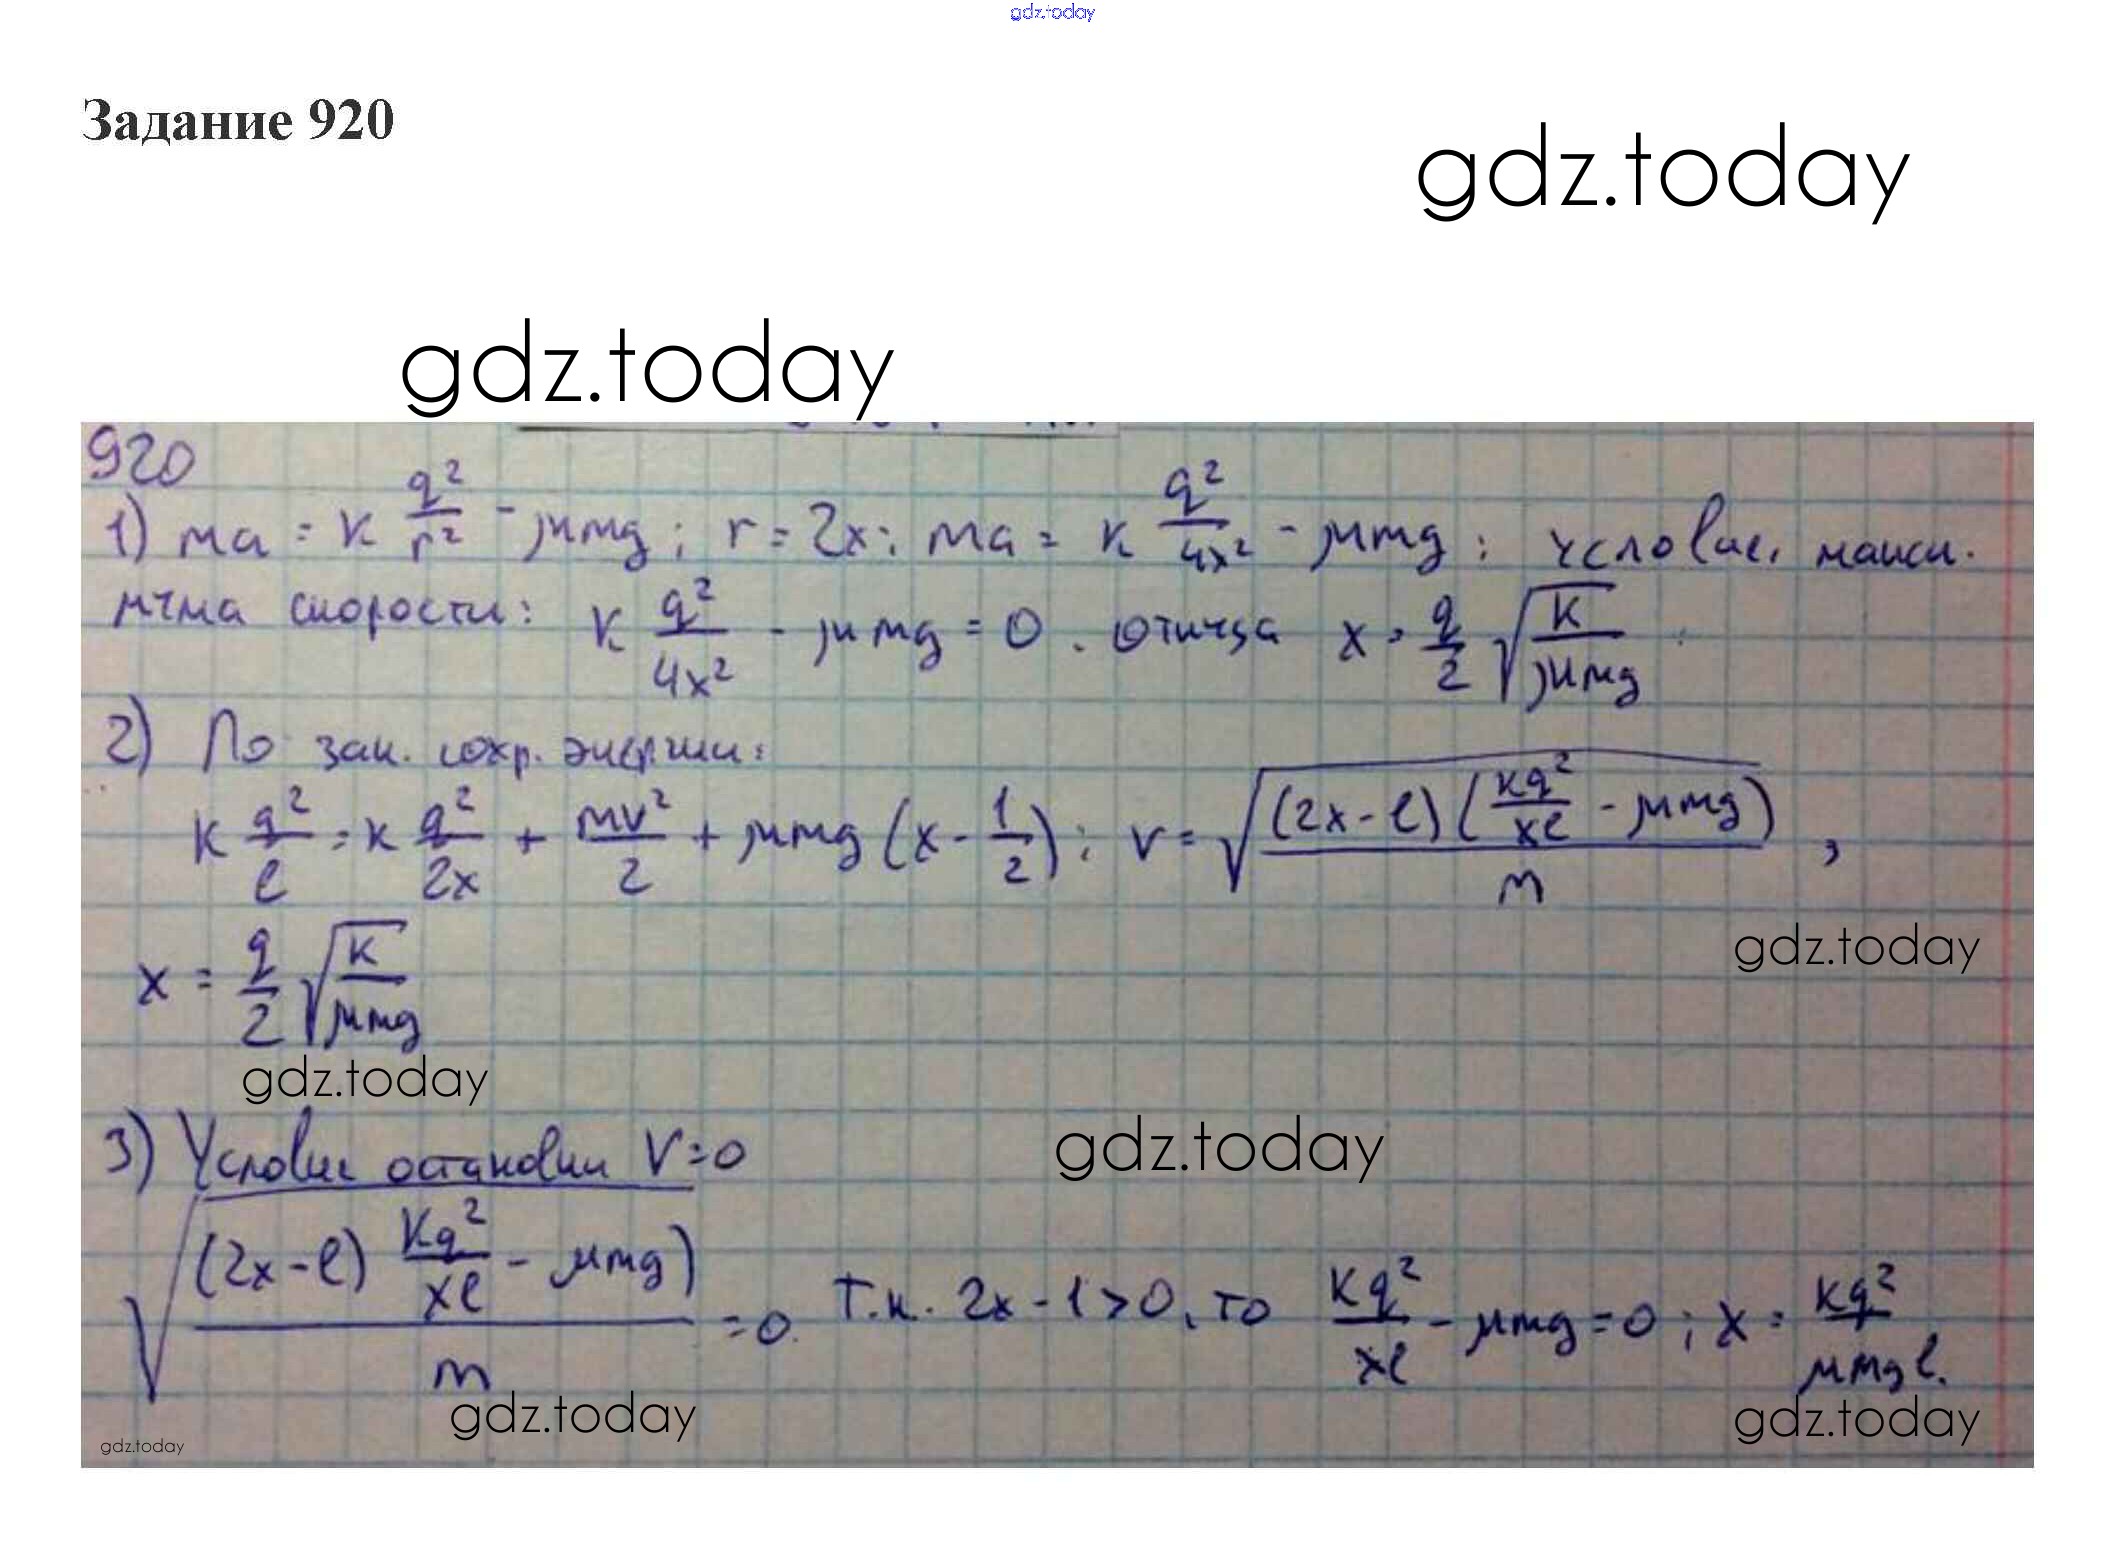 gdz.today
Задание 920
gdz.today
gdz.today
920
1) ma = k q²/r² - μmg; r = 2x; ma = k q²/4x² - μmg; условие макси-
мума скорости: k q²/4x² - μmg = 0. отсюда x = q/2 √(k/μmg)
2) По зак. сохр. энергии:
k q²/l = k q²/2x + mv²/2 + μmg (x - 1/2); v = √((2x-l)(kq²/xl - μmg)/m),
gdz.today
x = q/2 √(k/μmg)
gdz.today
3) Условие остановки V=0
gdz.today
√((2x-l) kq²/xl - μmg)/m) = 0. Т.к. 2x-1>0, то kq²/xl - μmg = 0; x = kq²/μmgl.
gdz.today
gdz.today
gdz.today